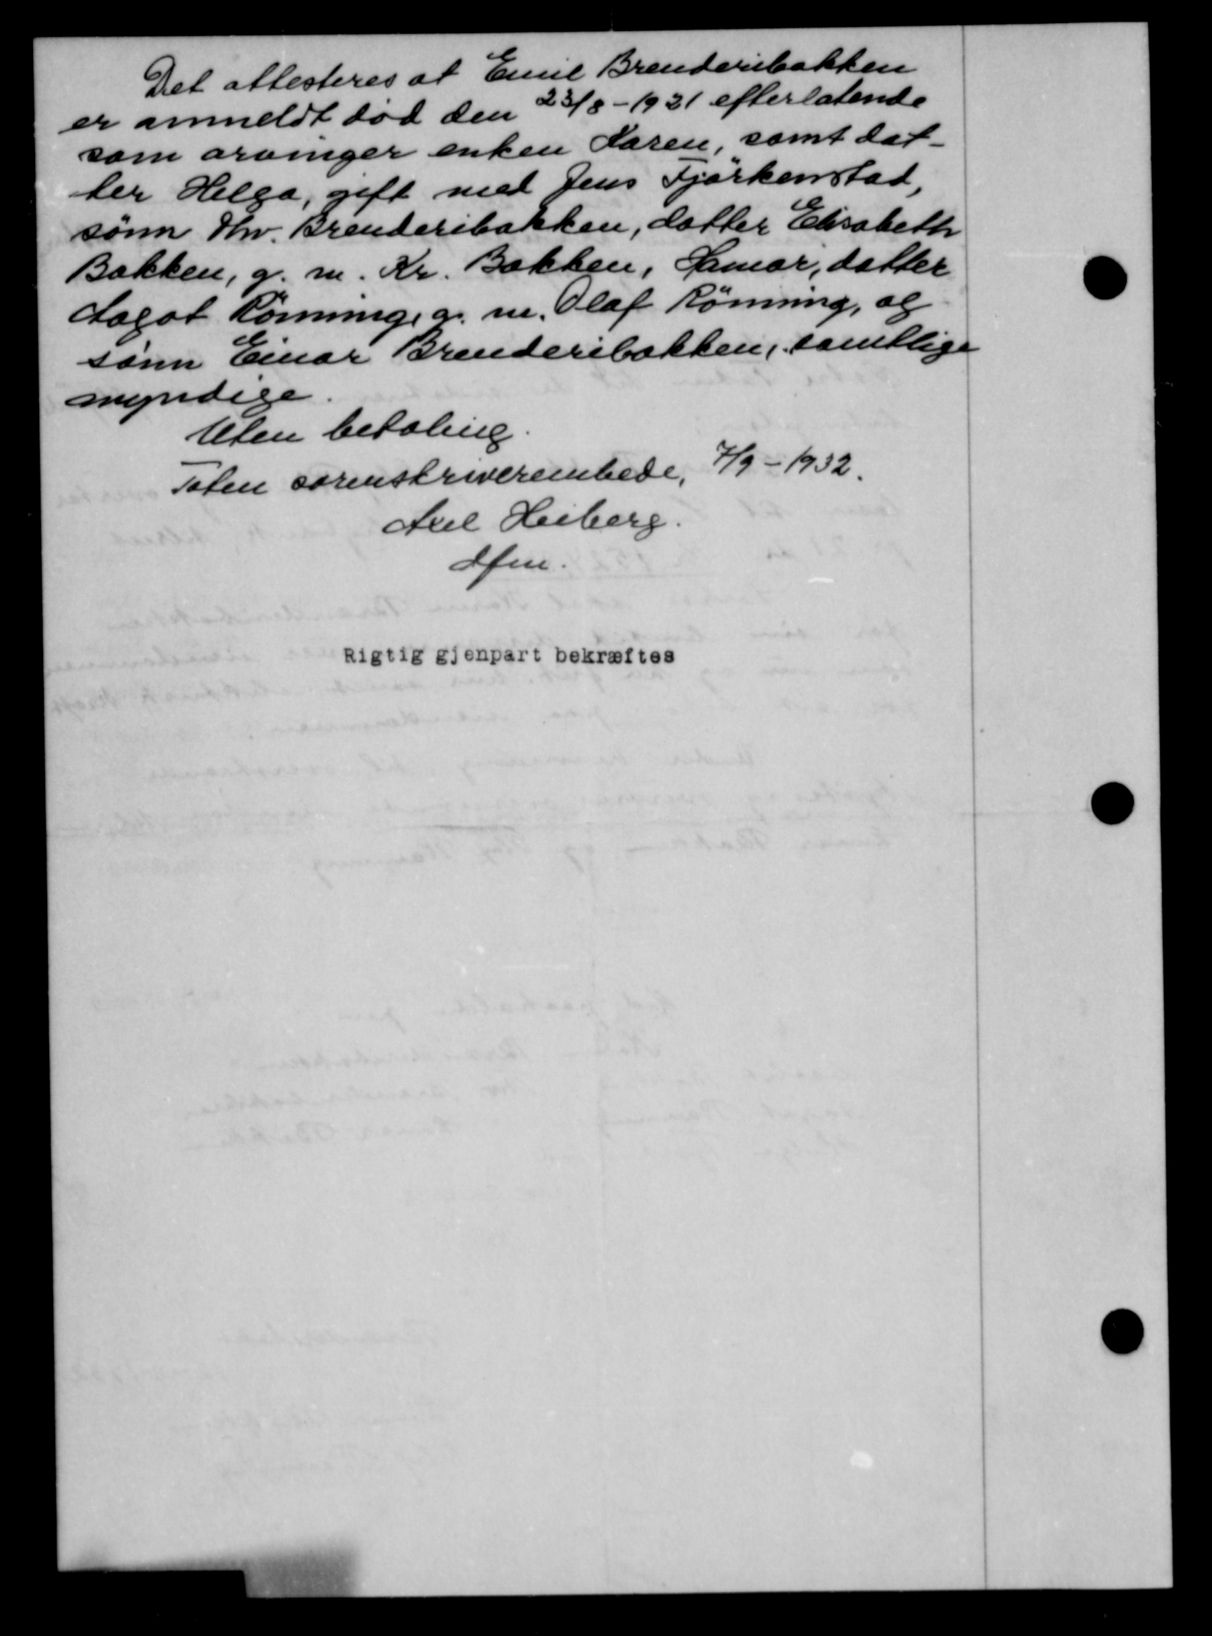 Det attesteres at Emil Brenderibakken
er anmeldt død den 23/8-1921 efterlatende
som arvinger enken Karen, samt dat-
ter Helga, gift med Jens Fjørkenstad,
sønn Thv. Brenderibakken, datter Elisabeth
Bakken, g. m. Kr. Bakken, Hamar, datter
Aagot Rønning, g. m. Olaf Rønning, og
sønn Einar Brenderibakken, samtlige
myndige.
Uten betaling.
Toten sorenskriverembede, 7/9-1932.
Axel Heiberg.
Rigtig gjenpart bekræftes